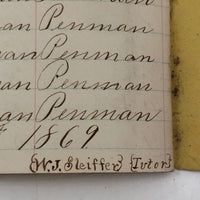 an Penman
an Penman
an Penman
an Penman
an Penman
1869
{W.J. Sleiffer} {Tutor}